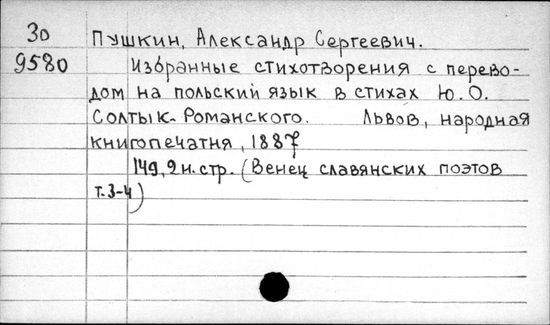 30
9580
Пушкин, Александр Сергеевич.
Избранные стихотворения с перево-
дом на польский язык в стихах Ю.О.
Солтык-Романского. Львов, народная
книгопечатня, 1887
149, 2 н. стр. (Венец славянских поэтов
т.3-4)